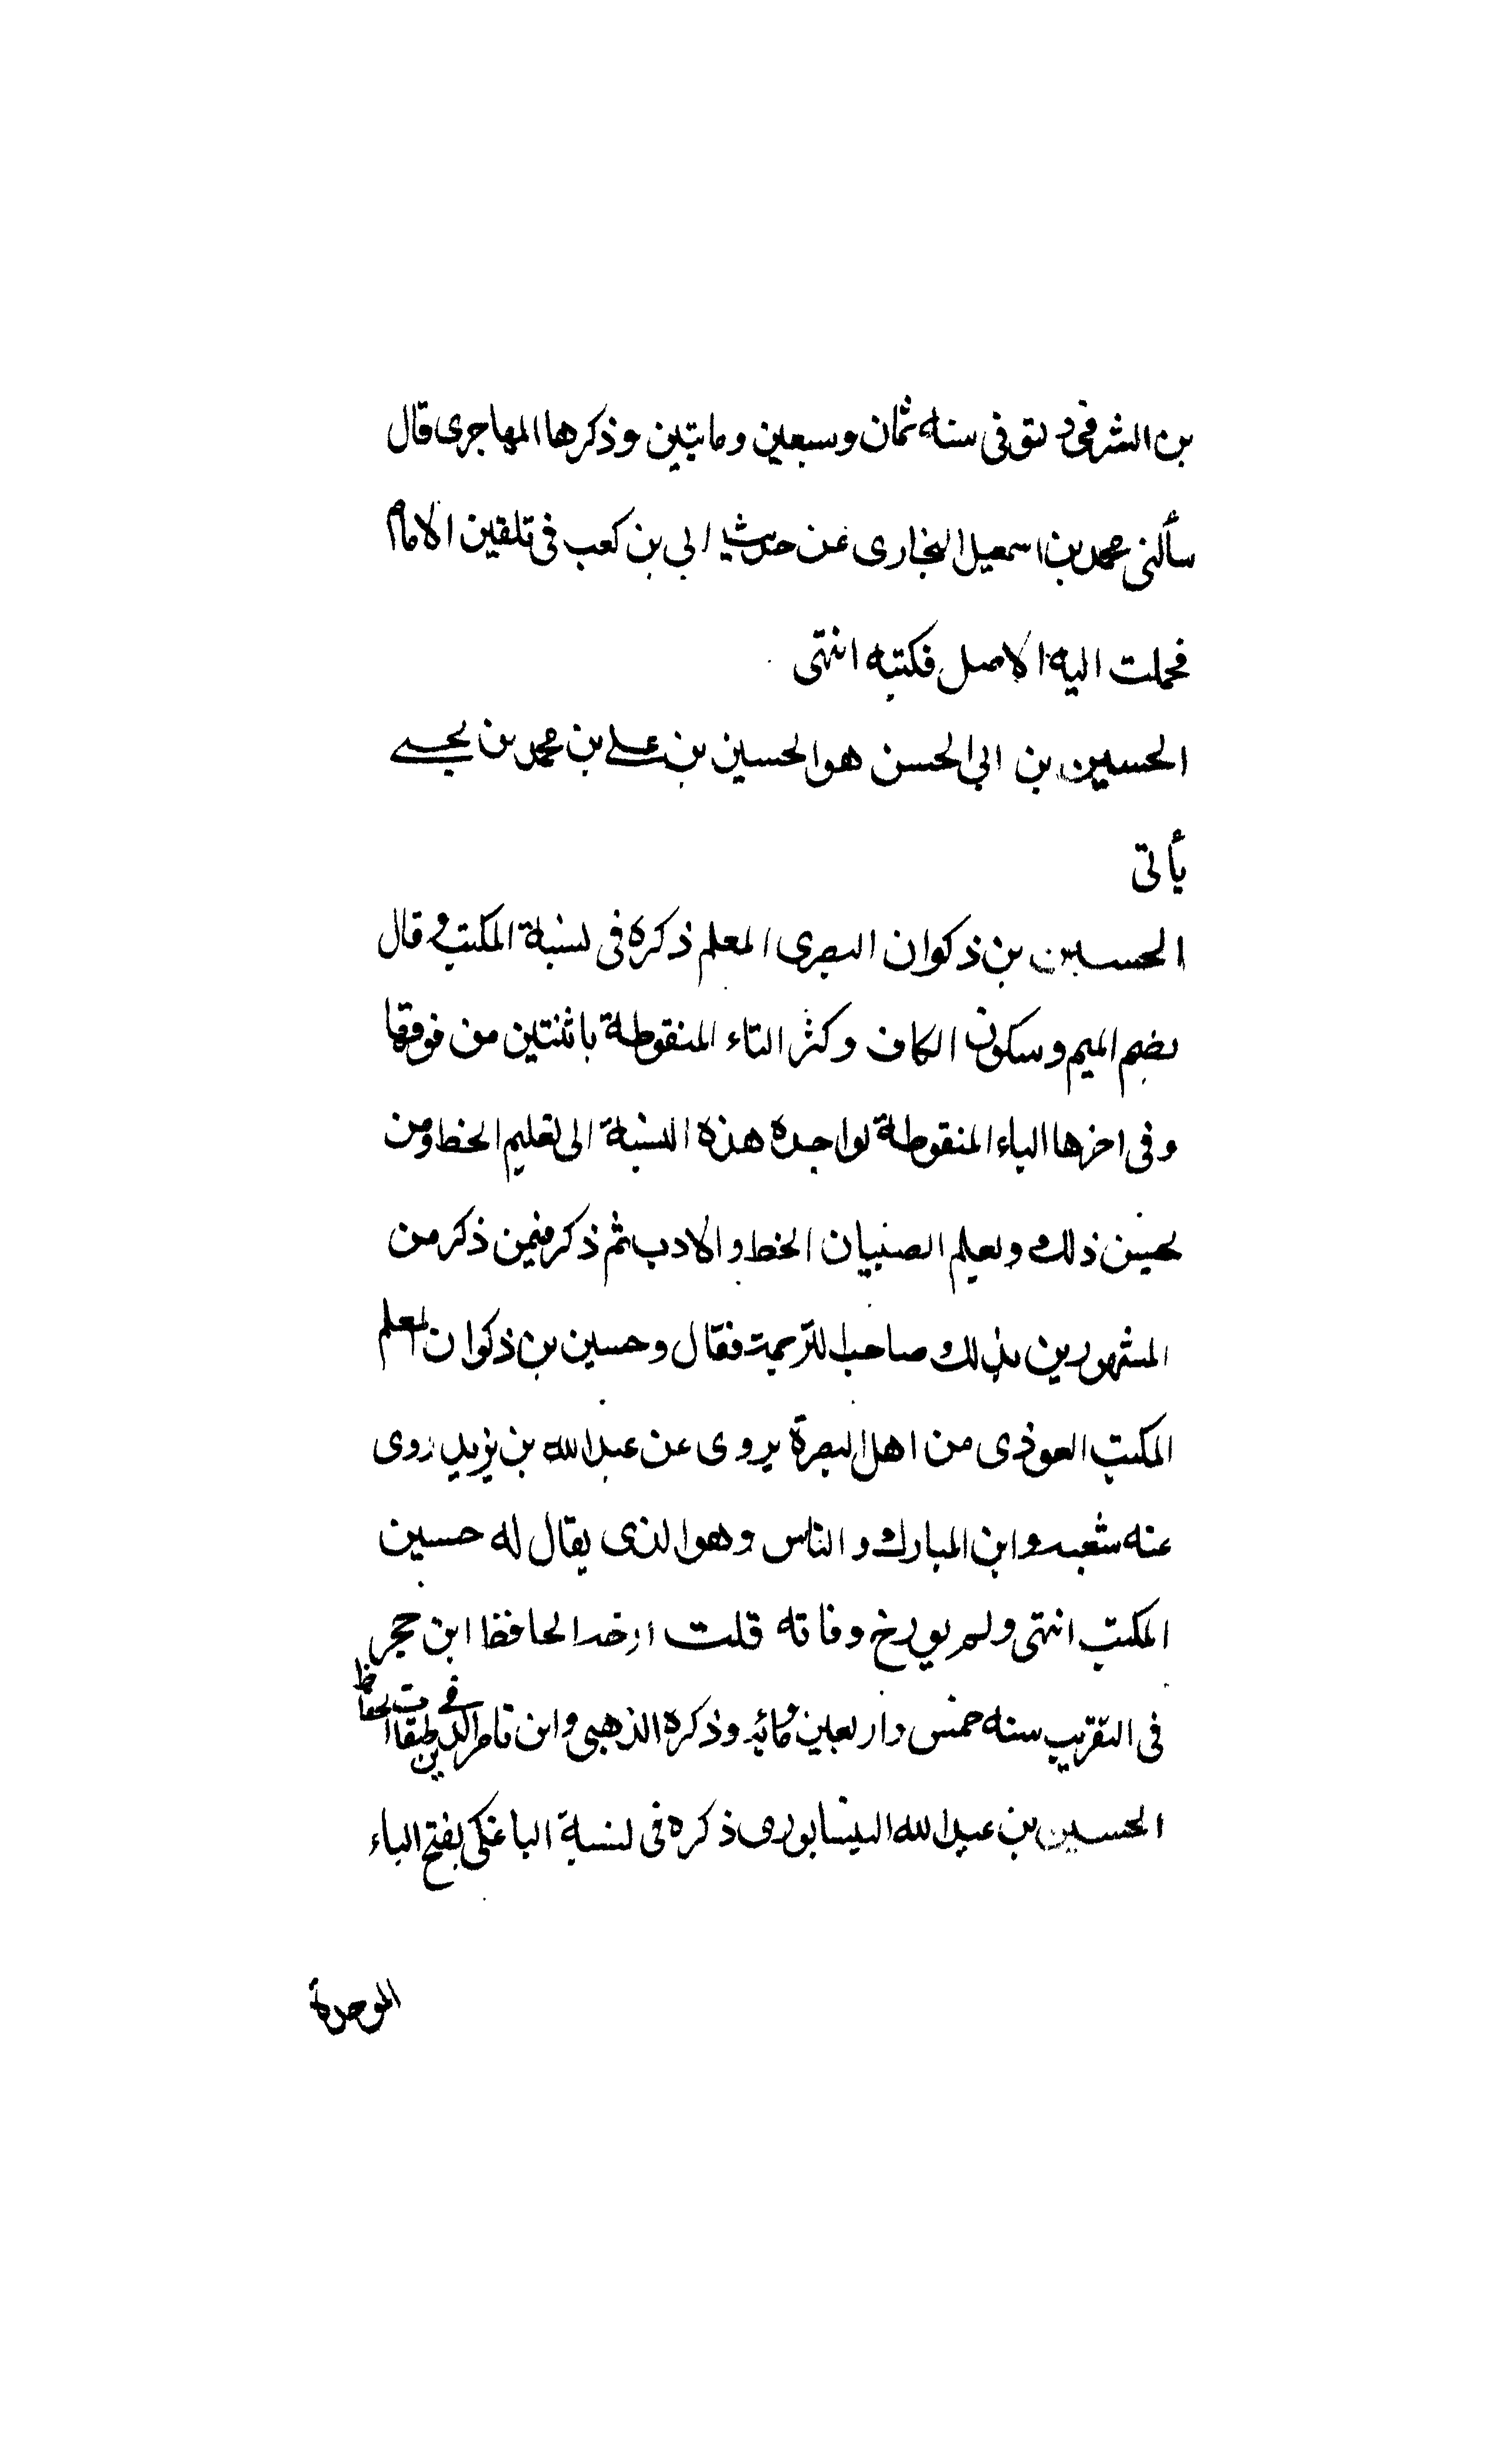 بن الشرقى توفى فى سنه ثمان وسبعين ومايتين وذكرها المهاجرى قال
سألنى محمد بن اسمعيل البخارى عن حديث ابي بن كعب فى تلقين الامام
فحملت اليه الاصل فكتبه انتهى
الحسين بن ابى الحسن هو الحسين بن على بن محمد بن يحيى
يأتى
الحسين بن ذكوان البصرى المعلم ذكره فى نسبة المكتب وقال
بضم الميم وسكون الكاف وكثر التاء المنقوطة باثنتين من فوقها
وفى اخرها الباء المنقوطة بواحدة هذه النسبة الى تعليم الخط ومن
يحسن ذلك وتعليم الصبيان الخط والادب ثم ذكر فيمن ذكر من
المشهورين بذلك صاحب الترجمة فقال وحسين بن ذكوان المعلم
المكتب العوذى من اهل البصرة يروى عن عبد الله بن بزيد روى
عنه شعبه وابن المبارك والناس وهو الذى يقال له حسين
المكتب انتهى ولم يورخ وفاته قلت ارخه الحافظ ابن حجر
فى التقريب سنه خمس واربعين ومائه وذكره الذهبى وابن ناصر الدين فى طبقات الحفاظ
الحسين بن عبد الله النيسابورى ذكره فى نسبة الباغكى بفتح الباء
الموحدة